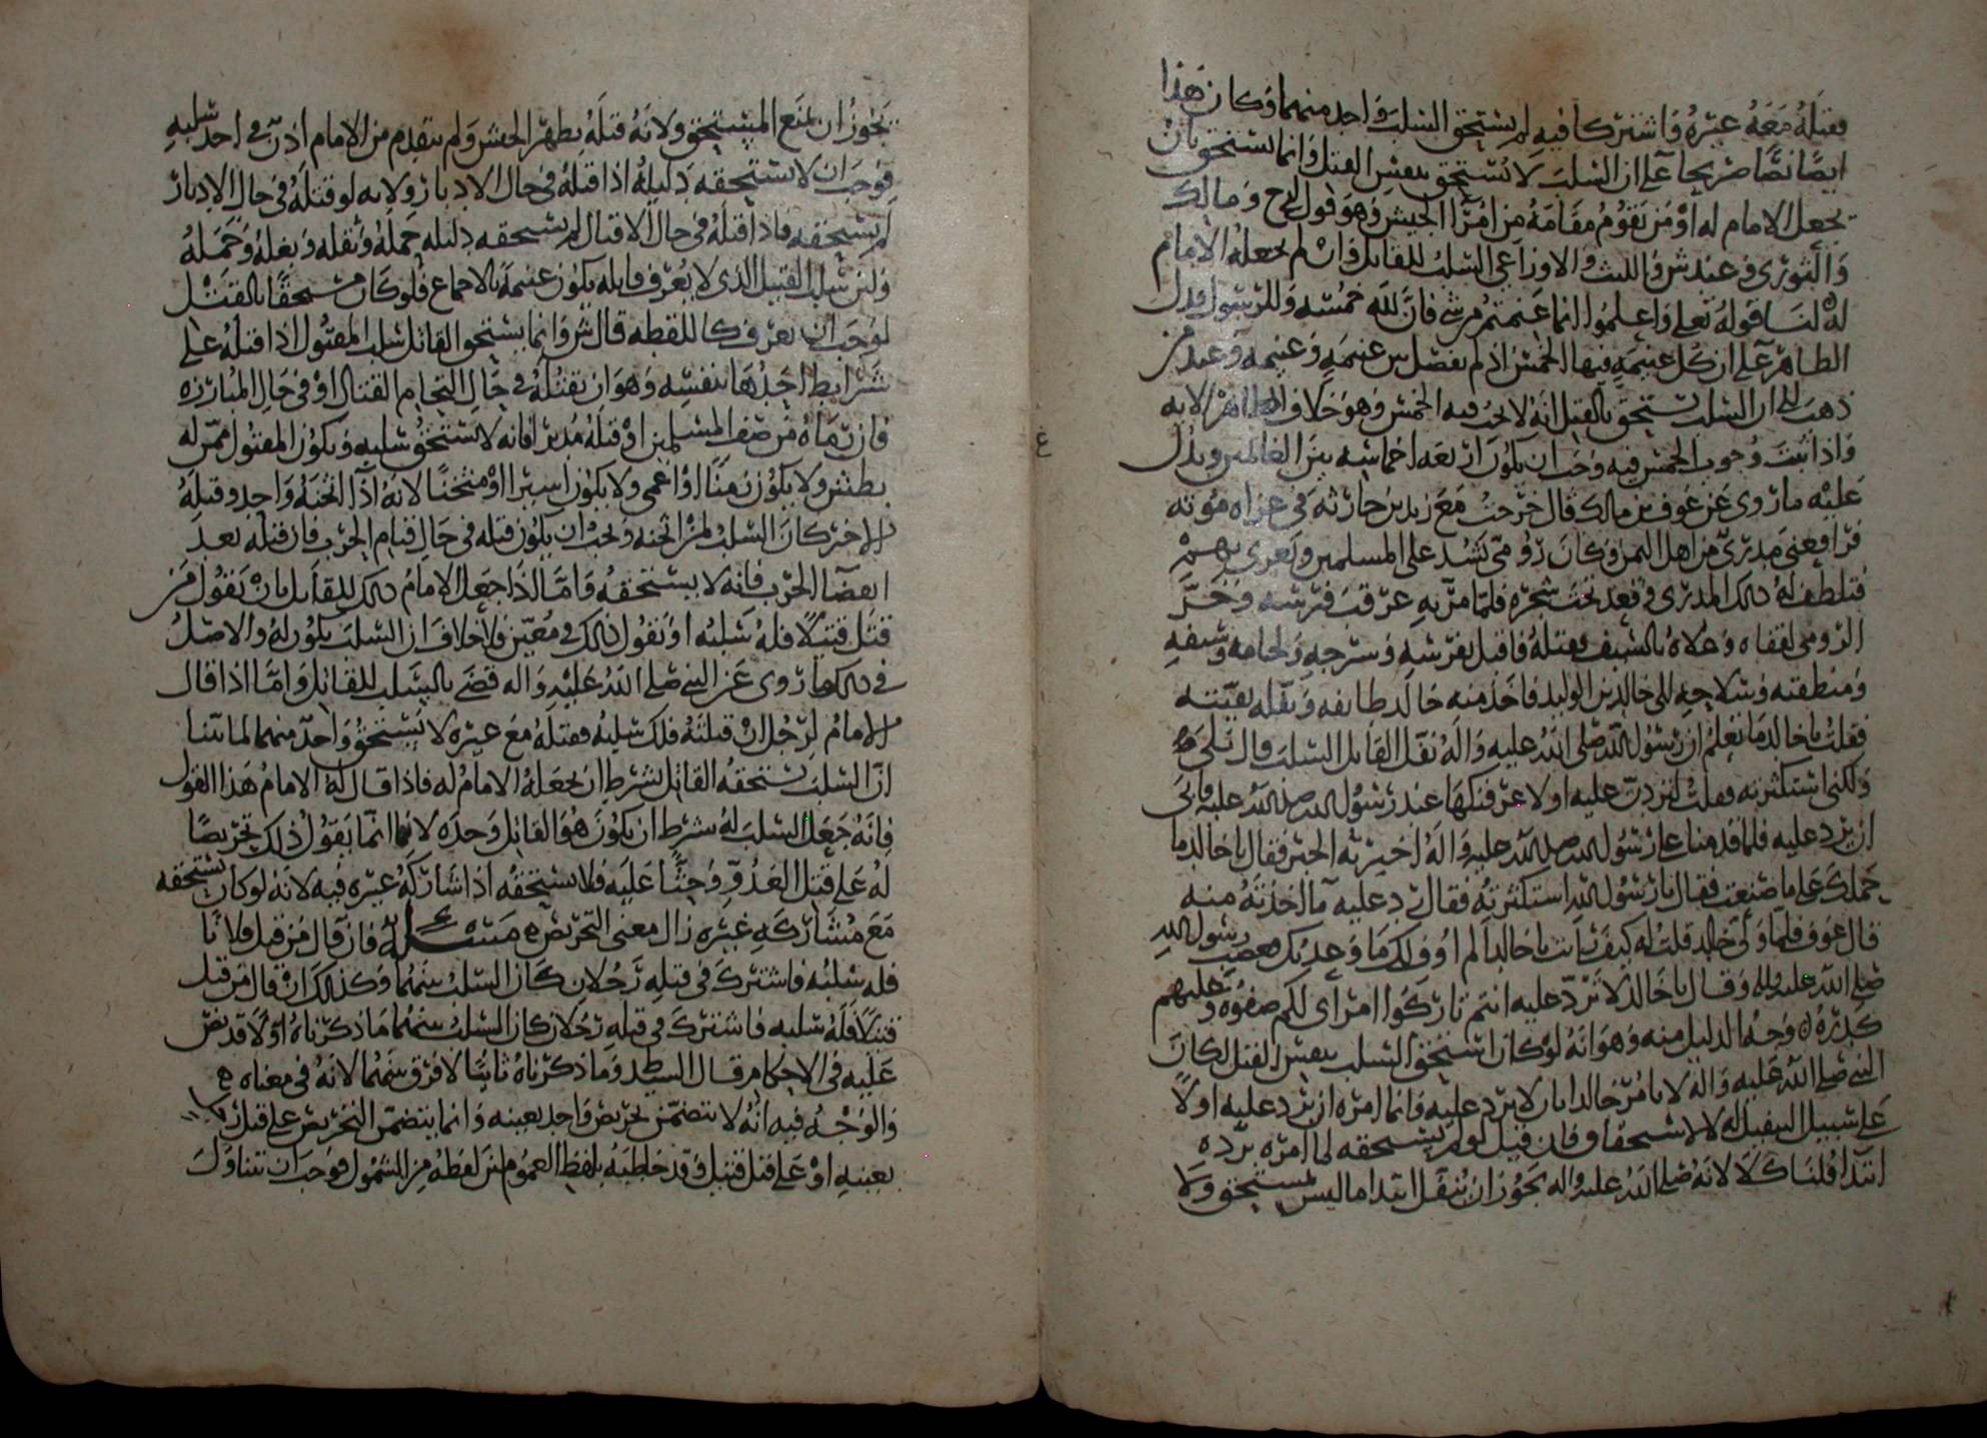 فقتله معه غيره واشتركا فيه لم يستحق السلب واحد منهما وكان هذا
ايضا نصا صريحا على ان السلب لا يستحق بنفس القتل وانما يستحق بان
يجعل الامام له او من يقوم مقامه من امرآ الجيش وهو قول ح ومالك
والثوري وعند ش والليث والاوزاعي السلب للقاتل وان لم يجعله الامام
له لنا قوله تعلى واعلموا انما غنمتم من شي فان لله خمسه وللرسول فدل
الظاهر على ان كل غنيمه فيها الخمس اذ لم يفصل بين غنيمه وغنيمه وعند من
ذهب الى ان السلب يستحق بالقتل انه لا يجب فيه الخمس وهو خلاف الظاهر لانه
واذا ثبت وجوب الخمس فيه وجب ان يكون اربعه اخماسه بين الغانمين ويدل
عليه ما روي عن عوف بن مالك قال خرجت مع زيد بن حارثه في غزاه موته
فرافقني مددي من اهل اليمن وكان رومي يشد على المسلمين ويغري بهم
فتلطف له ذلك المددي وقعد تحت شجره فلما مر به عرقب فرسه وخر
الرومي لقفاه وعلاه بالسيف فقتله فاقبل بفرسه وسرجه ولجامه وسيفه
ومنطقته وسلاحه الى خالد بن الوليد فاخذ منه خالد طايفه ونفله بقيته
فقلت يا خالد ما تعلم ان رسول الله صلى الله عليه واله نفل القاتل السلب قال بلى
ولكني استكثرته فقلت لتردن عليه او لاعرفنكها عند رسول الله صلى الله عليه فابى
ان يرد عليه فلما قدمنا على رسول الله صلى الله عليه واله اخبرته الخبر فقال يا خالد ما
حملك على ما صنعت فقال يا رسول الله استكثرته فقال رد عليه ما اخذته منه
قال عوف فلما ولى خالد قلت له كيف رايت يا خالد الم اوف لك ما وعدتك فغضب رسول الله
صلى الله عليه واله وقال يا خالد لا ترد عليه انتم تاركوا امراي لكم صفوه وعليهم
كدره وجه الدليل منه وهو انه لو كان استحق السلب بنفس القتل لكان
النبي صلى الله عليه واله لا يامر خالدا بان لا يرد عليه فانما امره ان يرد عليه اولا
على سبيل التنفيل له لا لاستحقاق فان قيل لو لم يستحقه لما امره برده
ابتدا قلنا كلا لانه صلى الله عليه واله يجوز ان ينفل ابتدا ما ليس لمستحق ولا
يجوز ان يمنع المستحق ولانه قتله بظهر الجيش ولم يتقدم من الامام اذن في اخذ سلبه
فوجب ان لا يستحقه دليله اذا قتله في حال الادبار ولانه لو قتله في حال الادبار
لم يستحقه فاذا قتله في حال الاقتال لم يستحقه دليله حمله وثقله وبغله وجمله
ولئن سلب القتيل الذي لا يعرف قاتله يكون غنيمة بالاجماع فلو كان مستحقا بالقتل
لوجب ان يعرف كاللقطه قال ش وانما يستحق القاتل سلب المقتول اذا قتله على
شرايط احدها بنفسه وهو ان يقتله في حال التحام القتال او في حال المبارزه
فان رماه من صف المسلمين او قتله مدبرا فانه لا يستحق سلبه ويكون المقتول ممن له
بطش ولا يكون زمنا او اعمى ولا يكون اسيرا او مثخنا لانه اذا اثخنه واحد وقتله
الاخر كان السلب لمن اثخنه ويجب ان يكون قتله في حال قيام الحرب فان قتله بعد
انقضآ الحرب فانه لا يستحقه فاما اذا جعل الامام ذلك للقاتل بان يقول من
قتل قتيلا فله سلبه او يقول ذلك في معين فلا خلاف ان السلب يكون له والاصل
في ذلك ما روي عن النبي صلى الله عليه واله قضى بالسلب للقاتل واما اذا قال
الامام لرجل ان قتلته فلك سلبه فقتله مع غيره لا يستحق واحد منهما لما بينا
ان السلب يستحقه القاتل بشرط ان يجعله الامام له فاذا قال له الامام هذا القول
فانه جعل السلب له بشرط ان يكون هو القاتل وحده لانه انما يقول ذلك تحريضا
له على قتل العدو وحثا عليه فلا يستحقه اذا شاركه غيره فيه لانه لو كان يستحقه
مع مشاركه غيره زال معنى التحريض مسئله فان قال من قتل فلانا
فله سلبه فاشترك في قتله رجلان كان السلب بينهما وكذلك ان قال من قتل
قتيلا فله سلبه فاشترك في قتله رجلان كان السلب بينهما ما ذكرناه اولا قد نص
عليه في الاحكام وقال السيد ط وما ذكرناه ثانيا لا فرق بينهما لانه في معناه
والوجه فيه انه لا يتضمن تحريض واحد بعينه وانما يتضمن التحريض على قتل
بعينه او على قتل قتيل وقد خاطبه بلفظ العموم لان لفظه من للشمول فوجب ان يتناول